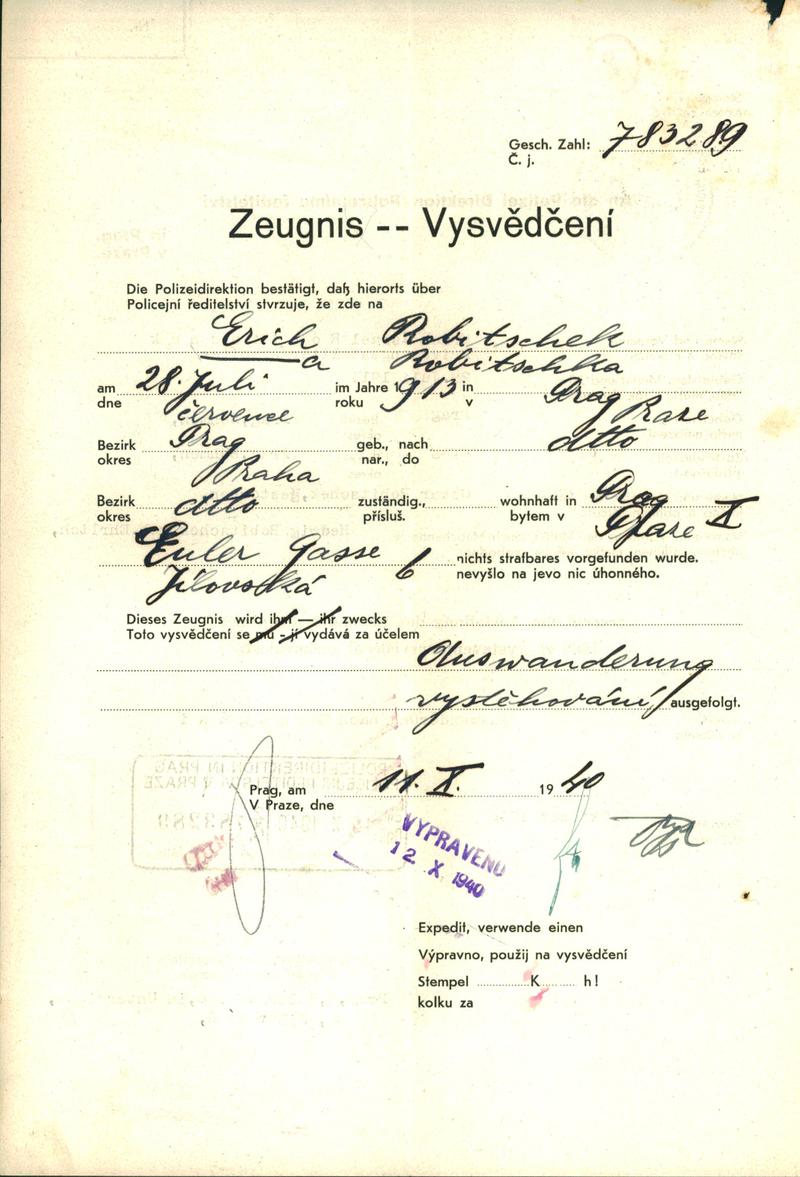 Gesch. Zahl: 783289
Č. j.
Zeugnis -- Vysvědčení
Die Polizeidirektion bestätigt, daß hierorts über
Policejní ředitelství stvrzuje, že zde na
Erich Robitschek
a Robitschka
am 28. Juli im Jahre 1913 in Prag
dne července roku v Praze
Bezirk Prag geb., nach dtto
okres Praha nar., do
Bezirk dtto zuständig., wohnhaft in Prag X
okres přísluš. bytem v Praze
Euler Gasse 6 nichts strafbares vorgefunden wurde.
Jílovská nevyšlo na jevo nic úhonného.
Dieses Zeugnis wird ihm — ihr zwecks
Toto vysvědčení se mu - jí vydává za účelem
Auswanderung
vystěhování ausgefolgt.
Prag, am 11. X. 1940
V Praze, dne
VYPRAVENO
12 X 1940
Expedit, verwende einen
Výpravno, použij na vysvědčení
Stempel K h!
kolku za